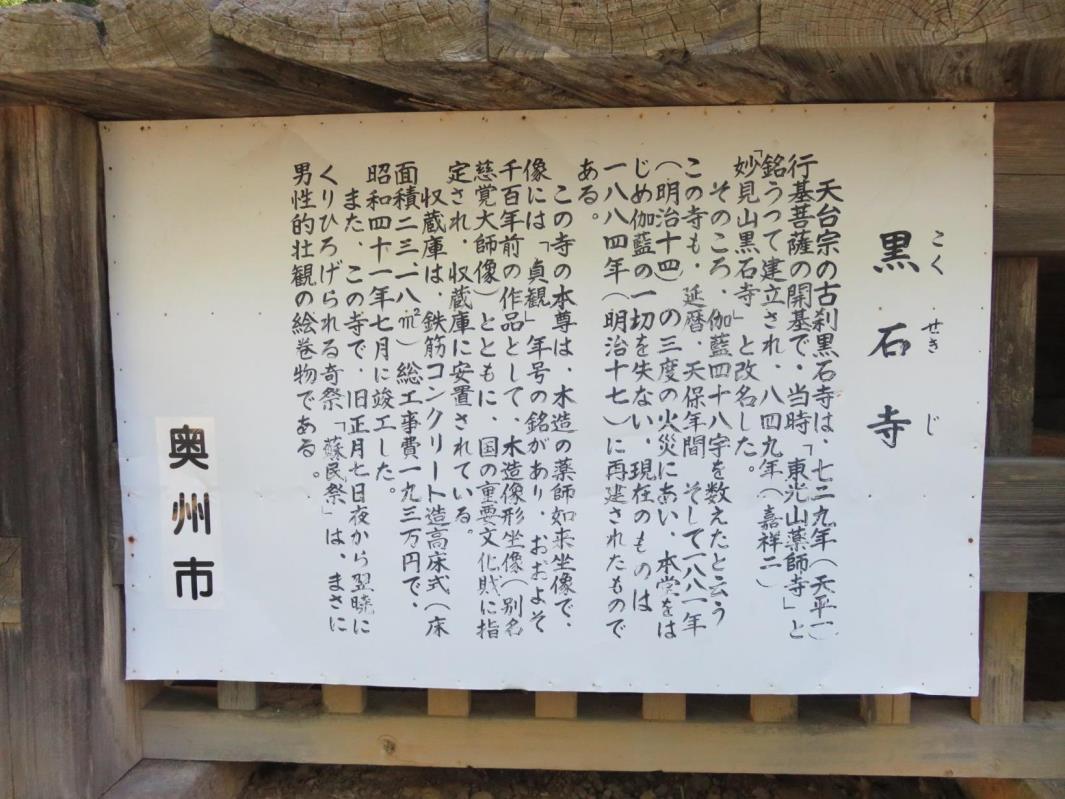 黒石寺
こくせきじ
天台宗の古刹黒石寺は、七二九年（天平一）
行基菩薩の開基で、当時「東光山薬師寺」と
銘うって建立され、八四九年（嘉祥二）
「妙見山黒石寺」と改名した。
そのころ、伽藍四十八宇を数えたと云う
この寺も、延暦、天保年間 そして一八八一年
（明治十四）の三度の火災にあい、本堂をは
じめ伽藍の一切を失ない、現在のものは
一八八四年（明治十七）に再建されたもので
ある。
この寺の本尊は、木造の薬師如来坐像で、
像には「貞観」年号の銘があり、おおよそ
千百年前の作品として、木造像形坐像（別名
慈覚大師像）とともに、国の重要文化財に指
定され、収蔵庫に安置されている。
収蔵庫は、鉄筋コンクリート造高床式（床
面積二三、一八㎡）総工事費一九三万円で、
昭和四十一年七月に竣工した。
また、この寺で、旧正月七日夜から翌暁に
くりひろげられる奇祭「蘇民祭」は、まさに
男性的壮観の絵巻物である。
奥州市